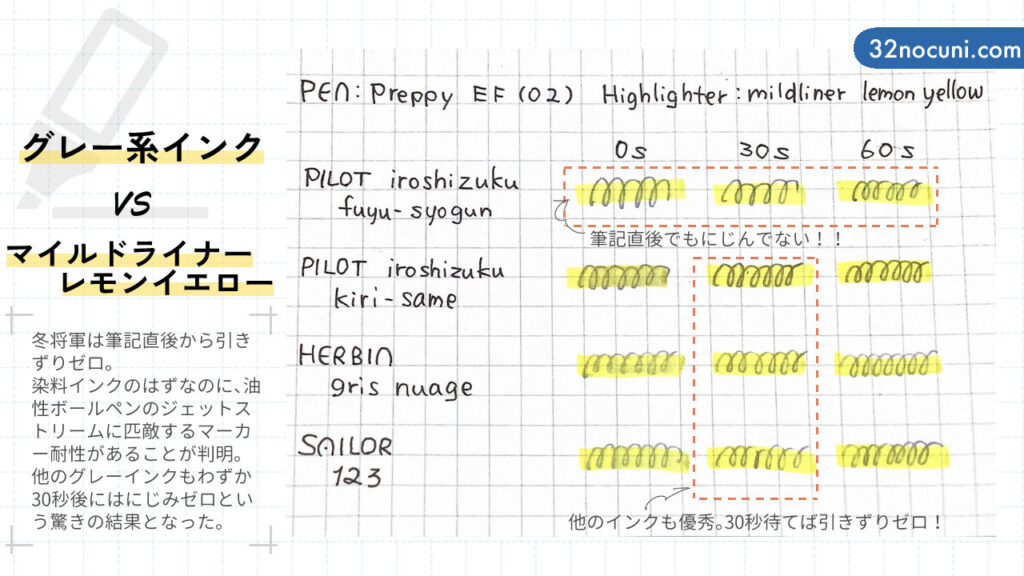 32nocuni.com
グレー系インク
VS
マイルドライナー
レモンイエロー
冬将軍は筆記直後から引き
ずりゼロ。
染料インクのはずなのに、油
性ボールペンのジェットス
トリームに匹敵するマーカ
ー耐性があることが判明。
他のグレーインクもわずか
30秒後にはにじみゼロとい
う驚きの結果となった。
PEN: Preppy EF (02) Highlighter: mildliner lemon yellow
0s 30s 60s
PILOT iroshizuku
fuyu-syogun
筆記直後でもにじんでない！！
PILOT iroshizuku
kiri-same
HERBIN
gris nuage
SAILOR
123
他のインクも優秀。30秒待てば引きずりゼロ！